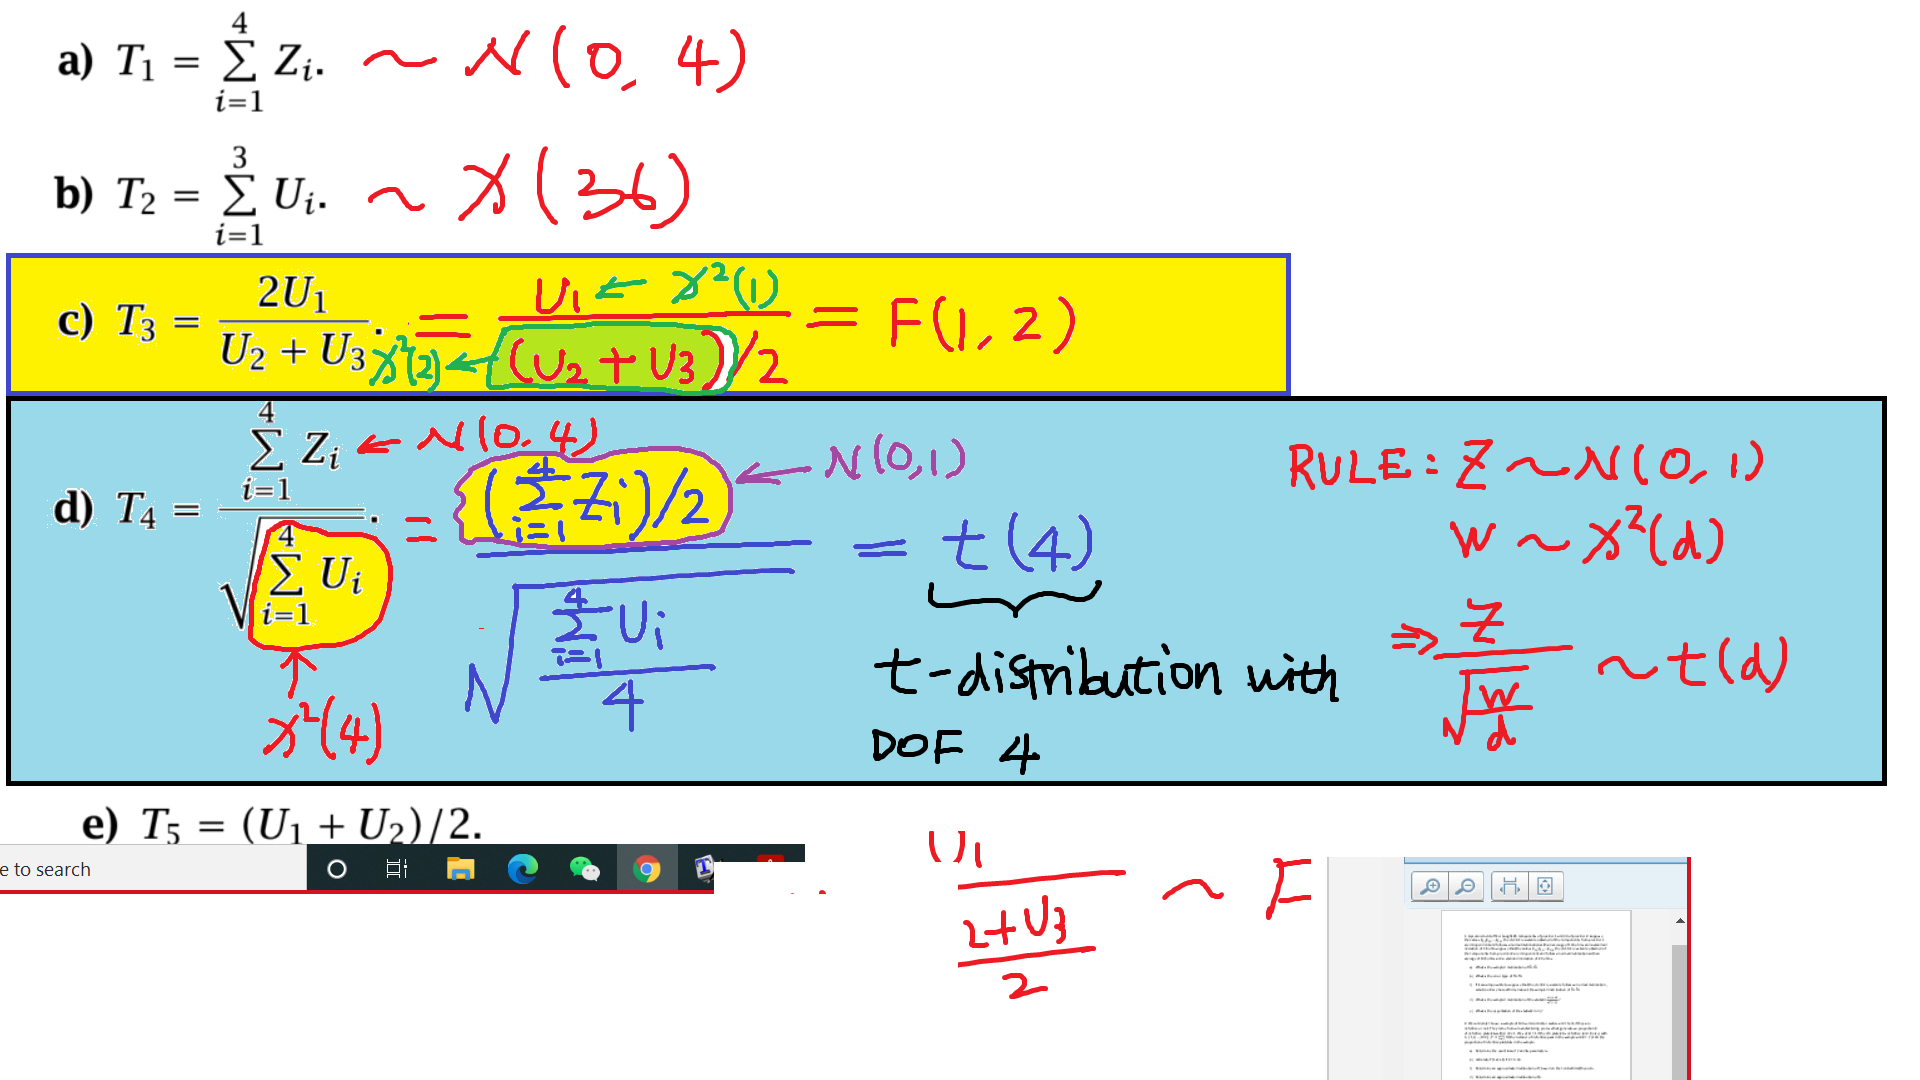 a) T₁ = ∑_{i=1}^{4} Z_i. ~ N(0, 4)
b) T₂ = ∑_{i=1}^{3} U_i. ~ X(36)
c) T₃ = 2U₁ / (U₂ + U₃). = U₁ ← X²(1) / (U₂ + U₃)/2 = F(1, 2)
X²(2) ←
d) T₄ = ∑_{i=1}^{4} Z_i / √(∑_{i=1}^{4} U_i). = (∑_{i=1}^{4} Z_i)/2 / √(∑_{i=1}^{4} U_i / 4) = t(4)
← N(0, 4)
← N(0, 1)
↑
X²(4)
t-distribution with
DOF 4
RULE: Z ~ N(0, 1)
W ~ X²(d)
⇒ Z / √(W/d) ~ t(d)
e) T₅ = (U₁ + U₂)/2.
e to search
U₁ / (2+U₃ / 2) ~ F